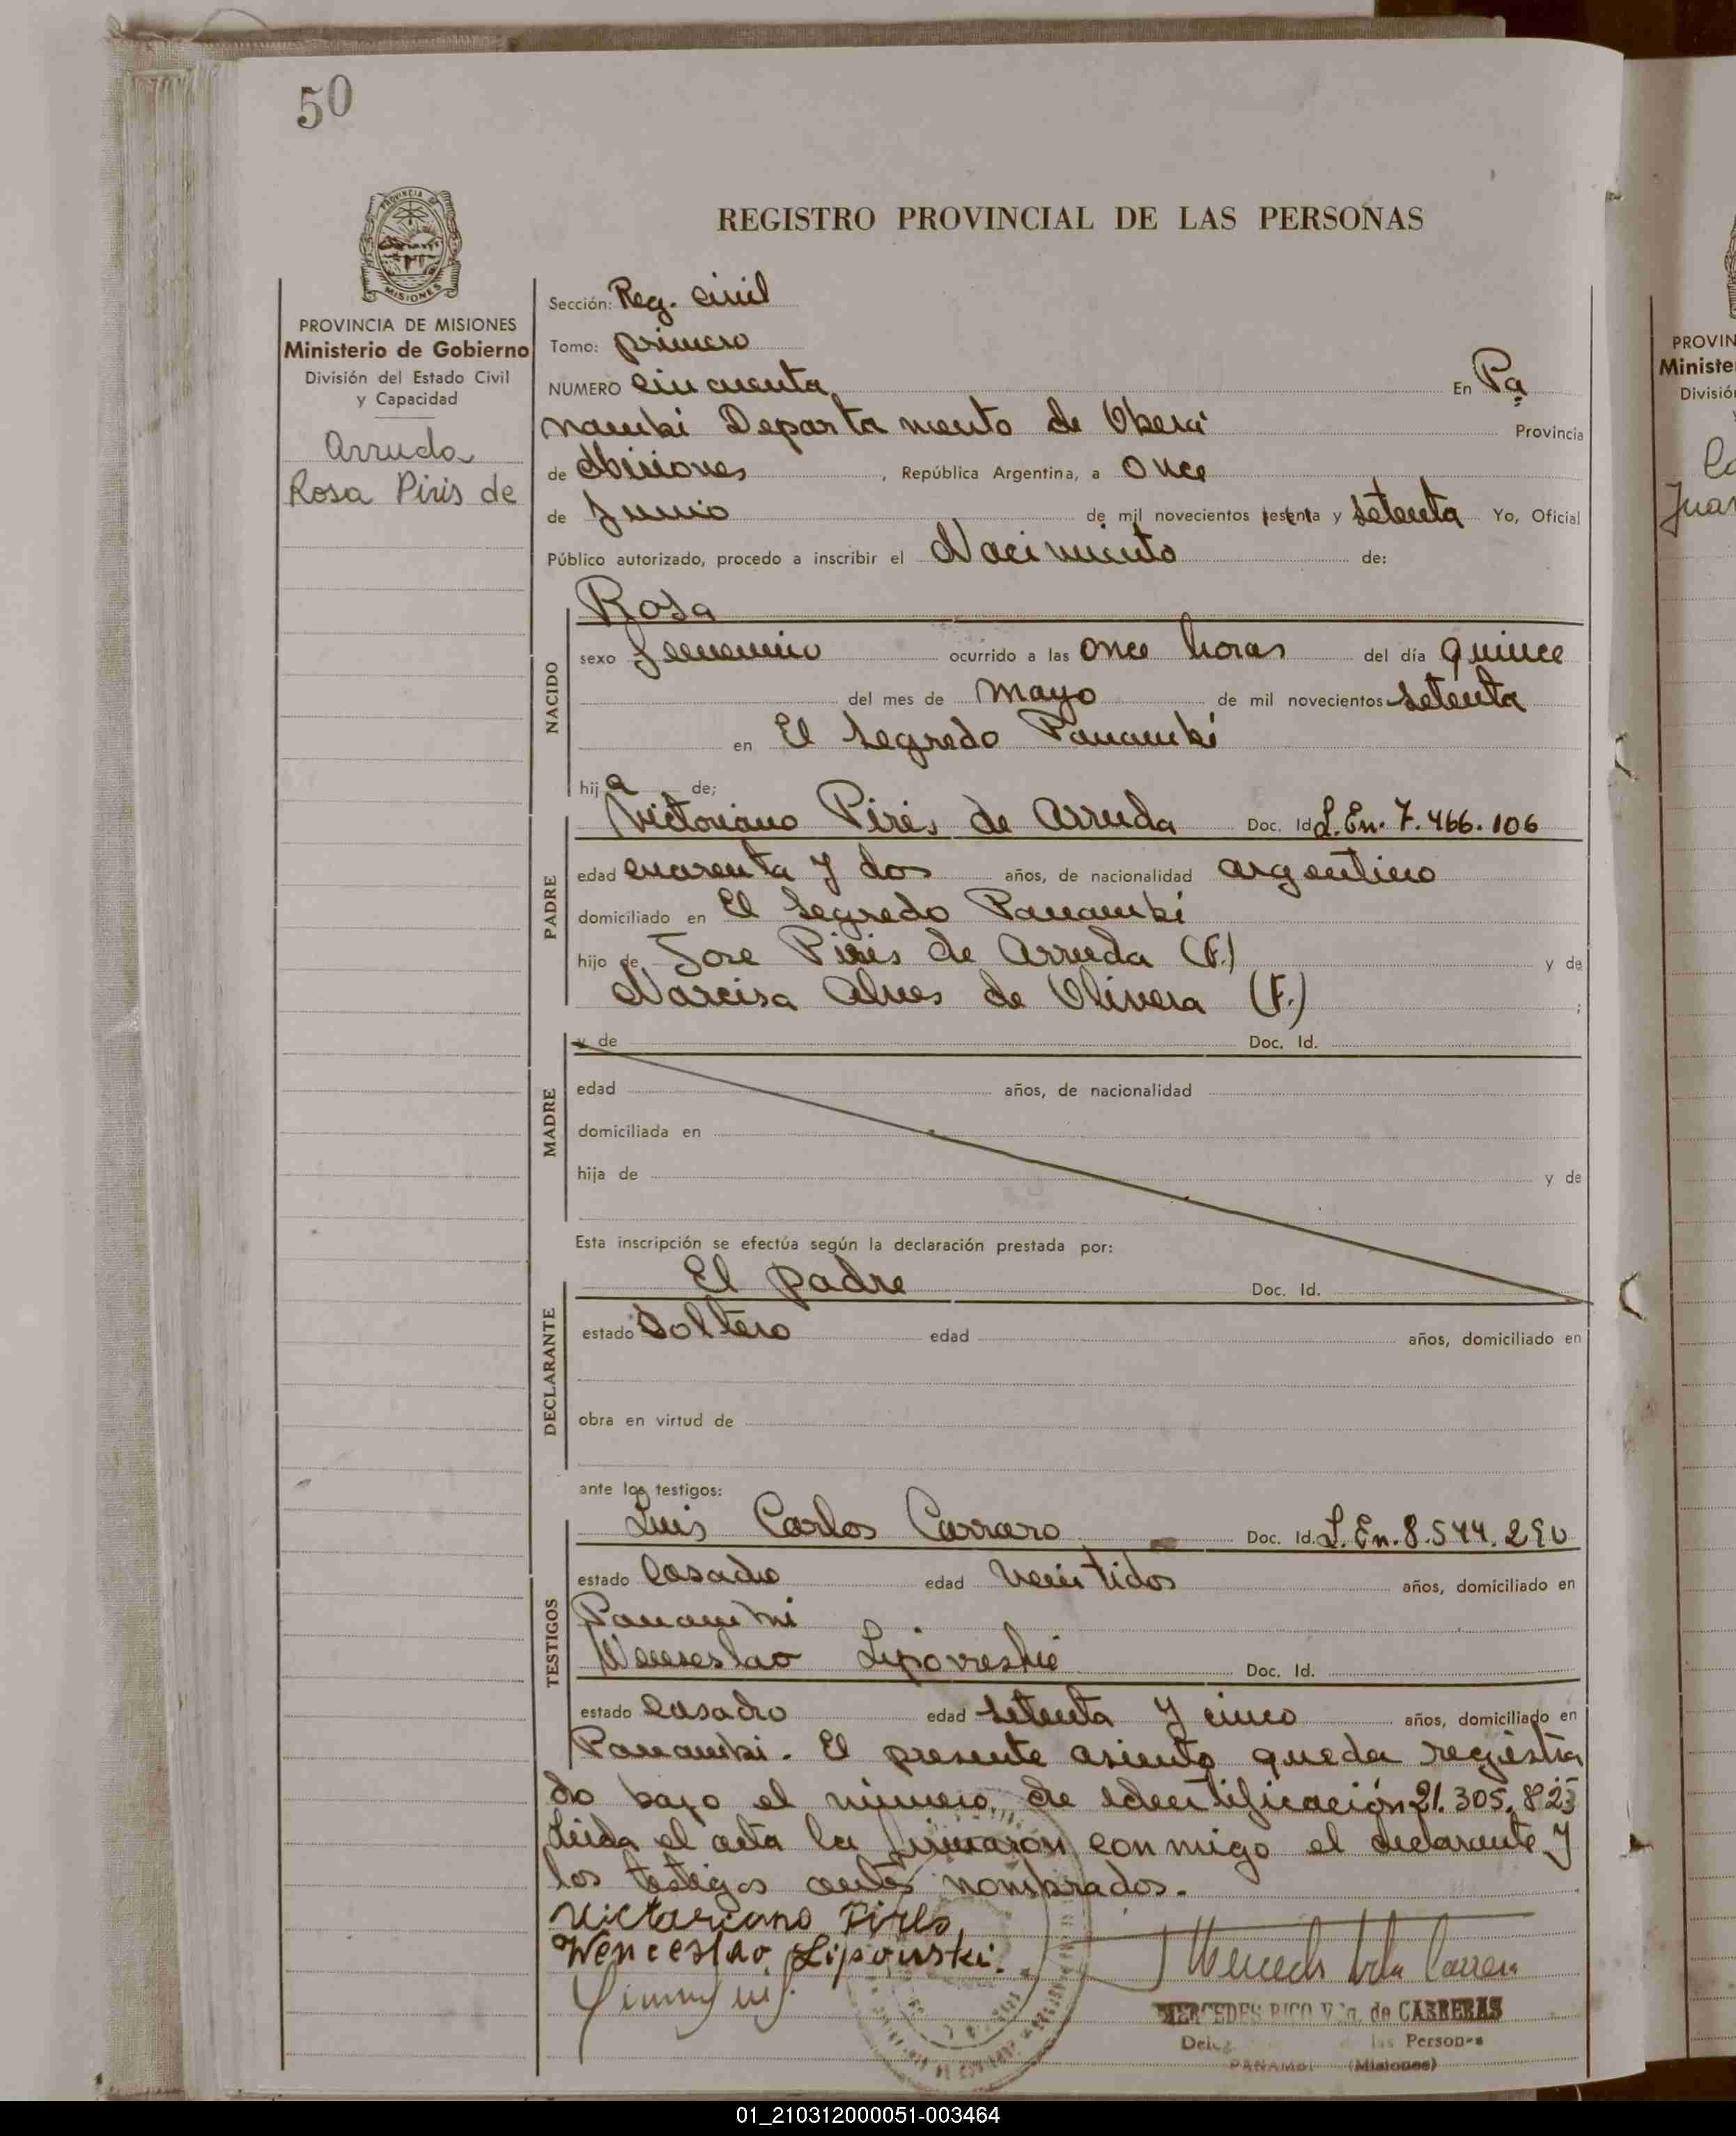 50
REGISTRO PROVINCIAL DE LAS PERSONAS
PROVINCIA DE MISIONES
Ministerio de Gobierno
División del Estado Civil
y Capacidad
Arruda
Rosa Piris de
Sección: Reg. Civil
Tomo: primero
NUMERO cincuenta En Pa
nambi Departamento de Oberá Provincia
de Misiones, República Argentina, a once
de Junio de mil novecientos sesenta y setenta Yo, Oficial
Público autorizado, procedo a inscribir el Nacimiento de:
NACIDO
Rosa
sexo femenino ocurrido a las once horas del día quince
del mes de mayo de mil novecientos setenta
en El Segredo Panambí
hija de;
PADRE
Victoriano Piris de Arruda Doc. Id. L.En. 7.466.106
edad cuarenta y dos años, de nacionalidad argentino
domiciliado en El Segredo Panambí
hijo de Jose Piris de Arruda (F.) y de
Narcisa Alves de Olivera (F.) ;
MADRE
y de Doc. Id.
edad años, de nacionalidad
domiciliada en
hija de y de
Esta inscripción se efectúa según la declaración prestada por:
DECLARANTE
El padre Doc. Id.
estado Soltero edad años, domiciliado en
obra en virtud de
ante los testigos:
TESTIGOS
Luis Carlos Carraro Doc. Id. L.En. 8.544.290
estado casado edad veintidos años, domiciliado en
Panambi
Wenseslao Lipovreski Doc. Id.
estado casado edad setenta y cinco años, domiciliado en
Panambi. El presente asiento queda registra
do bajo el número de identificación 21.305.823
Leida el acta la firmaron conmigo el declarante y
los testigos antes nombrados.
Victoriano Pires
Wenceslao Lipouski.
MERCEDES RICO Vda. de CARRERAS
Personas
PANAMBI (Misiones)
PROVIN
Ministe
Divisió
Juan
01_210312000051-003464